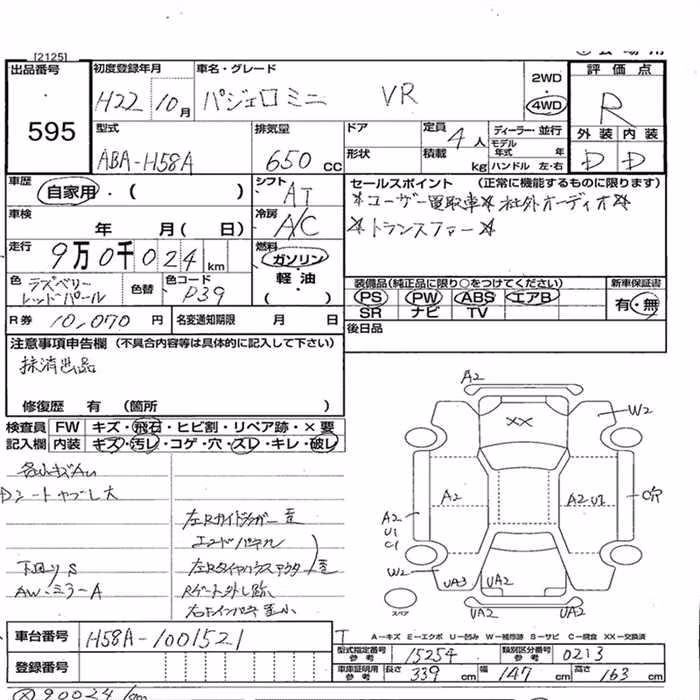 [2125]
出品番号
595
初度登録年月
H22 10月
車名・グレード
パジェロミニ VR
2WD
4WD
評価点
R
外装 内装
D D
型式
ABA-H58A
排気量
650cc
ドア
形状
定員 4人
積載 kg
ディーラー・並行
モデル年式 年
ハンドル 左・右
車歴
自家用・( )
シフト
AT
車検
年 月( 日)
冷房
A/C
走行
9万0千024km
燃料
ガソリン
軽油
( )
色
ラズベリー
レッドパール
色替
色コード
P39
R券 10,070円
名変通知期限 月 日
セールスポイント (正常に機能するものに限ります)
*ユーザー買取車*社外オーディオ*
*トランスファー*
装備品(純正品に限り○をつけてください)
PS PW ABS エアB
SR ナビ TV
新車保証書
有・無
後日品
注意事項申告欄(不具合内容等は具体的に記入して下さい)
抹消出品
修復歴 有 (箇所 )
検査員 FW キズ・飛石・ヒビ割・リペア跡・×要
記入欄 内装 キズ・汚レ・コゲ・穴・スレ・キレ・破レ
Dシートヤブレ大
下回りS
AW・ミラーA
エンドパネル
Rゲート外し跡
A2
XX
W2
A2
A2 U2
A2
U1
C1
W2
UA3
UA2
UA2
UA2
スペア
A−キズ E−エクボ U−凹み W−補修跡 S−サビ C−腐食 XX−交換済
車台番号
H58A-1001521
登録番号
型式指定番号
参考
15254
類別区分番号
参考
0213
車庫証明用
参考
長さ 339cm
幅 147cm
高さ 163cm
90024km